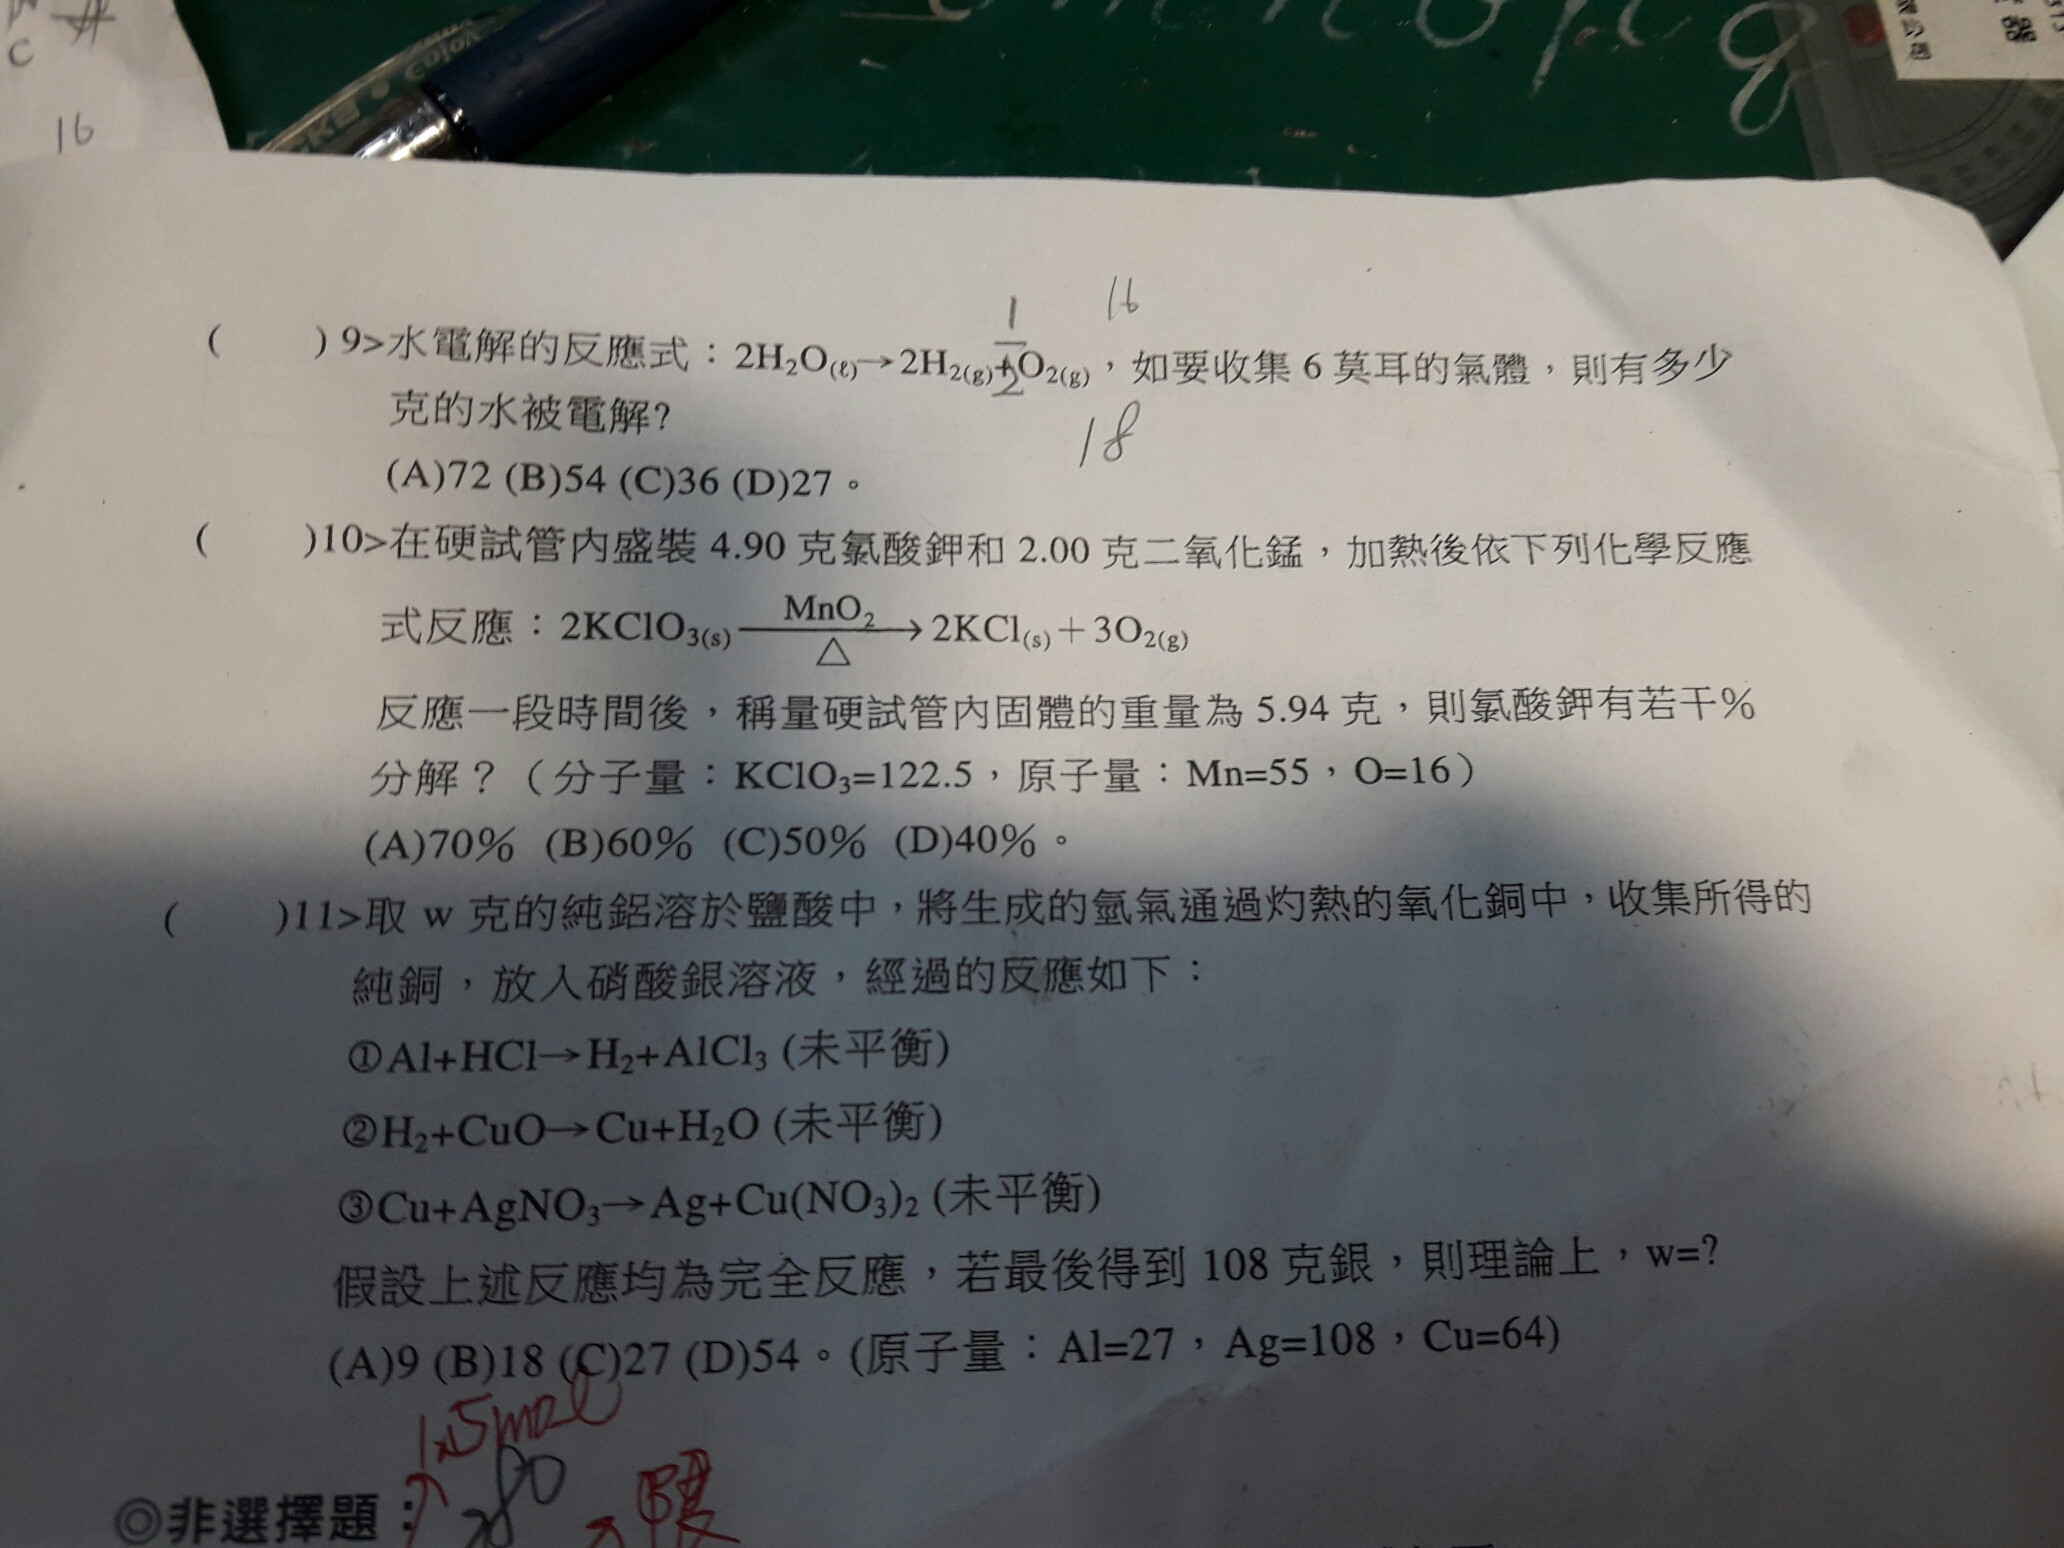 C
16
1 16
( ) 9>水電解的反應式：2H₂O(ℓ)→2H₂(g)+O₂(g)，如要收集 6 莫耳的氣體，則有多少
2
克的水被電解?
18
(A)72 (B)54 (C)36 (D)27。
( )10>在硬試管內盛裝 4.90 克氯酸鉀和 2.00 克二氧化錳，加熱後依下列化學反應
MnO₂
式反應：2KClO₃(s)⟶2KCl(s)＋3O₂(g)
△
反應一段時間後，稱量硬試管內固體的重量為 5.94 克，則氯酸鉀有若干%
分解？（分子量：KClO₃=122.5，原子量：Mn=55，O=16）
(A)70% (B)60% (C)50% (D)40%。
( )11>取 w 克的純鋁溶於鹽酸中，將生成的氫氣通過灼熱的氧化銅中，收集所得的
純銅，放入硝酸銀溶液，經過的反應如下：
①Al+HCl→H₂+AlCl₃ (未平衡)
②H₂+CuO→Cu+H₂O (未平衡)
③Cu+AgNO₃→Ag+Cu(NO₃)₂ (未平衡)
假設上述反應均為完全反應，若最後得到 108 克銀，則理論上，w=?
(A)9 (B)18 (C)27 (D)54。(原子量：Al=27，Ag=108，Cu=64)
◎非選擇題：